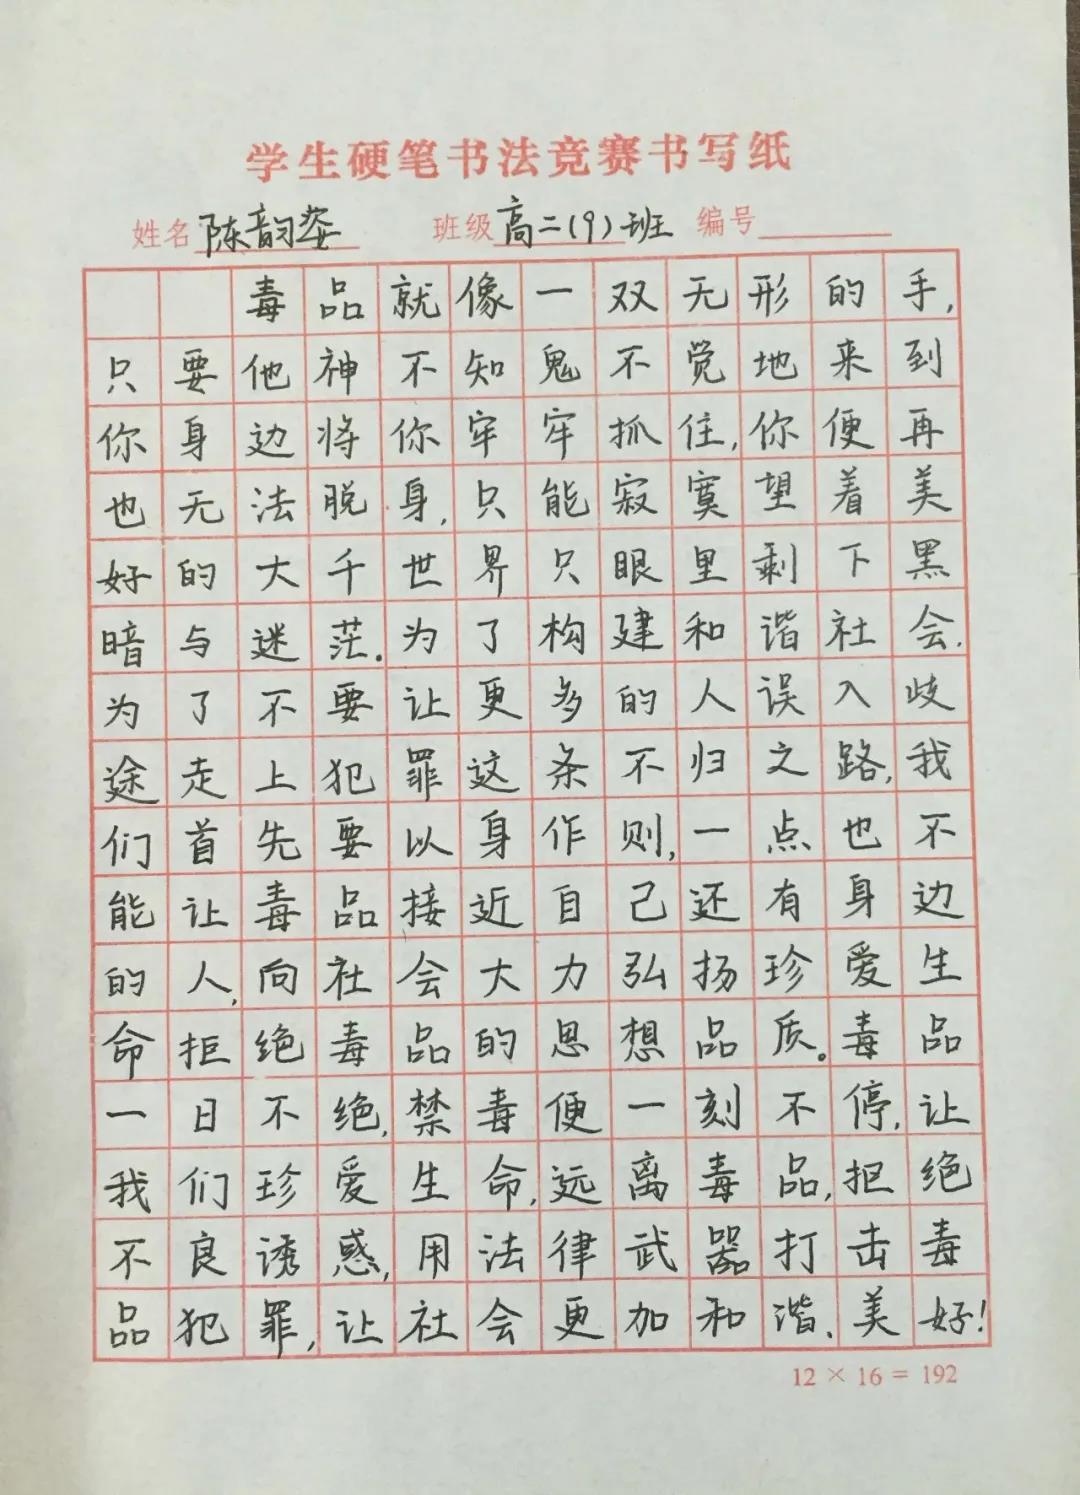 学生硬笔书法竞赛书写纸
姓名 陈韵姿 班级 高二(9)班 编号
毒品就像一双无形的手,
只要他神不知鬼不觉地来到
你身边将你牢牢抓住,你便再
也无法脱身,只能寂寞望着美
好的大千世界只眼里剩下黑
暗与迷茫。为了构建和谐社会,
为了不要让更多的人误入歧
途走上犯罪这条不归之路,我
们首先要以身作则,一点也不
能让毒品接近自己还有身边
的人,向社会大力弘扬珍爱生
命拒绝毒品的思想品质。毒品
一日不绝,禁毒便一刻不停,让
我们珍爱生命,远离毒品,拒绝
不良诱惑,用法律武器打击毒
品犯罪,让社会更加和谐、美好!
12 × 16 = 192